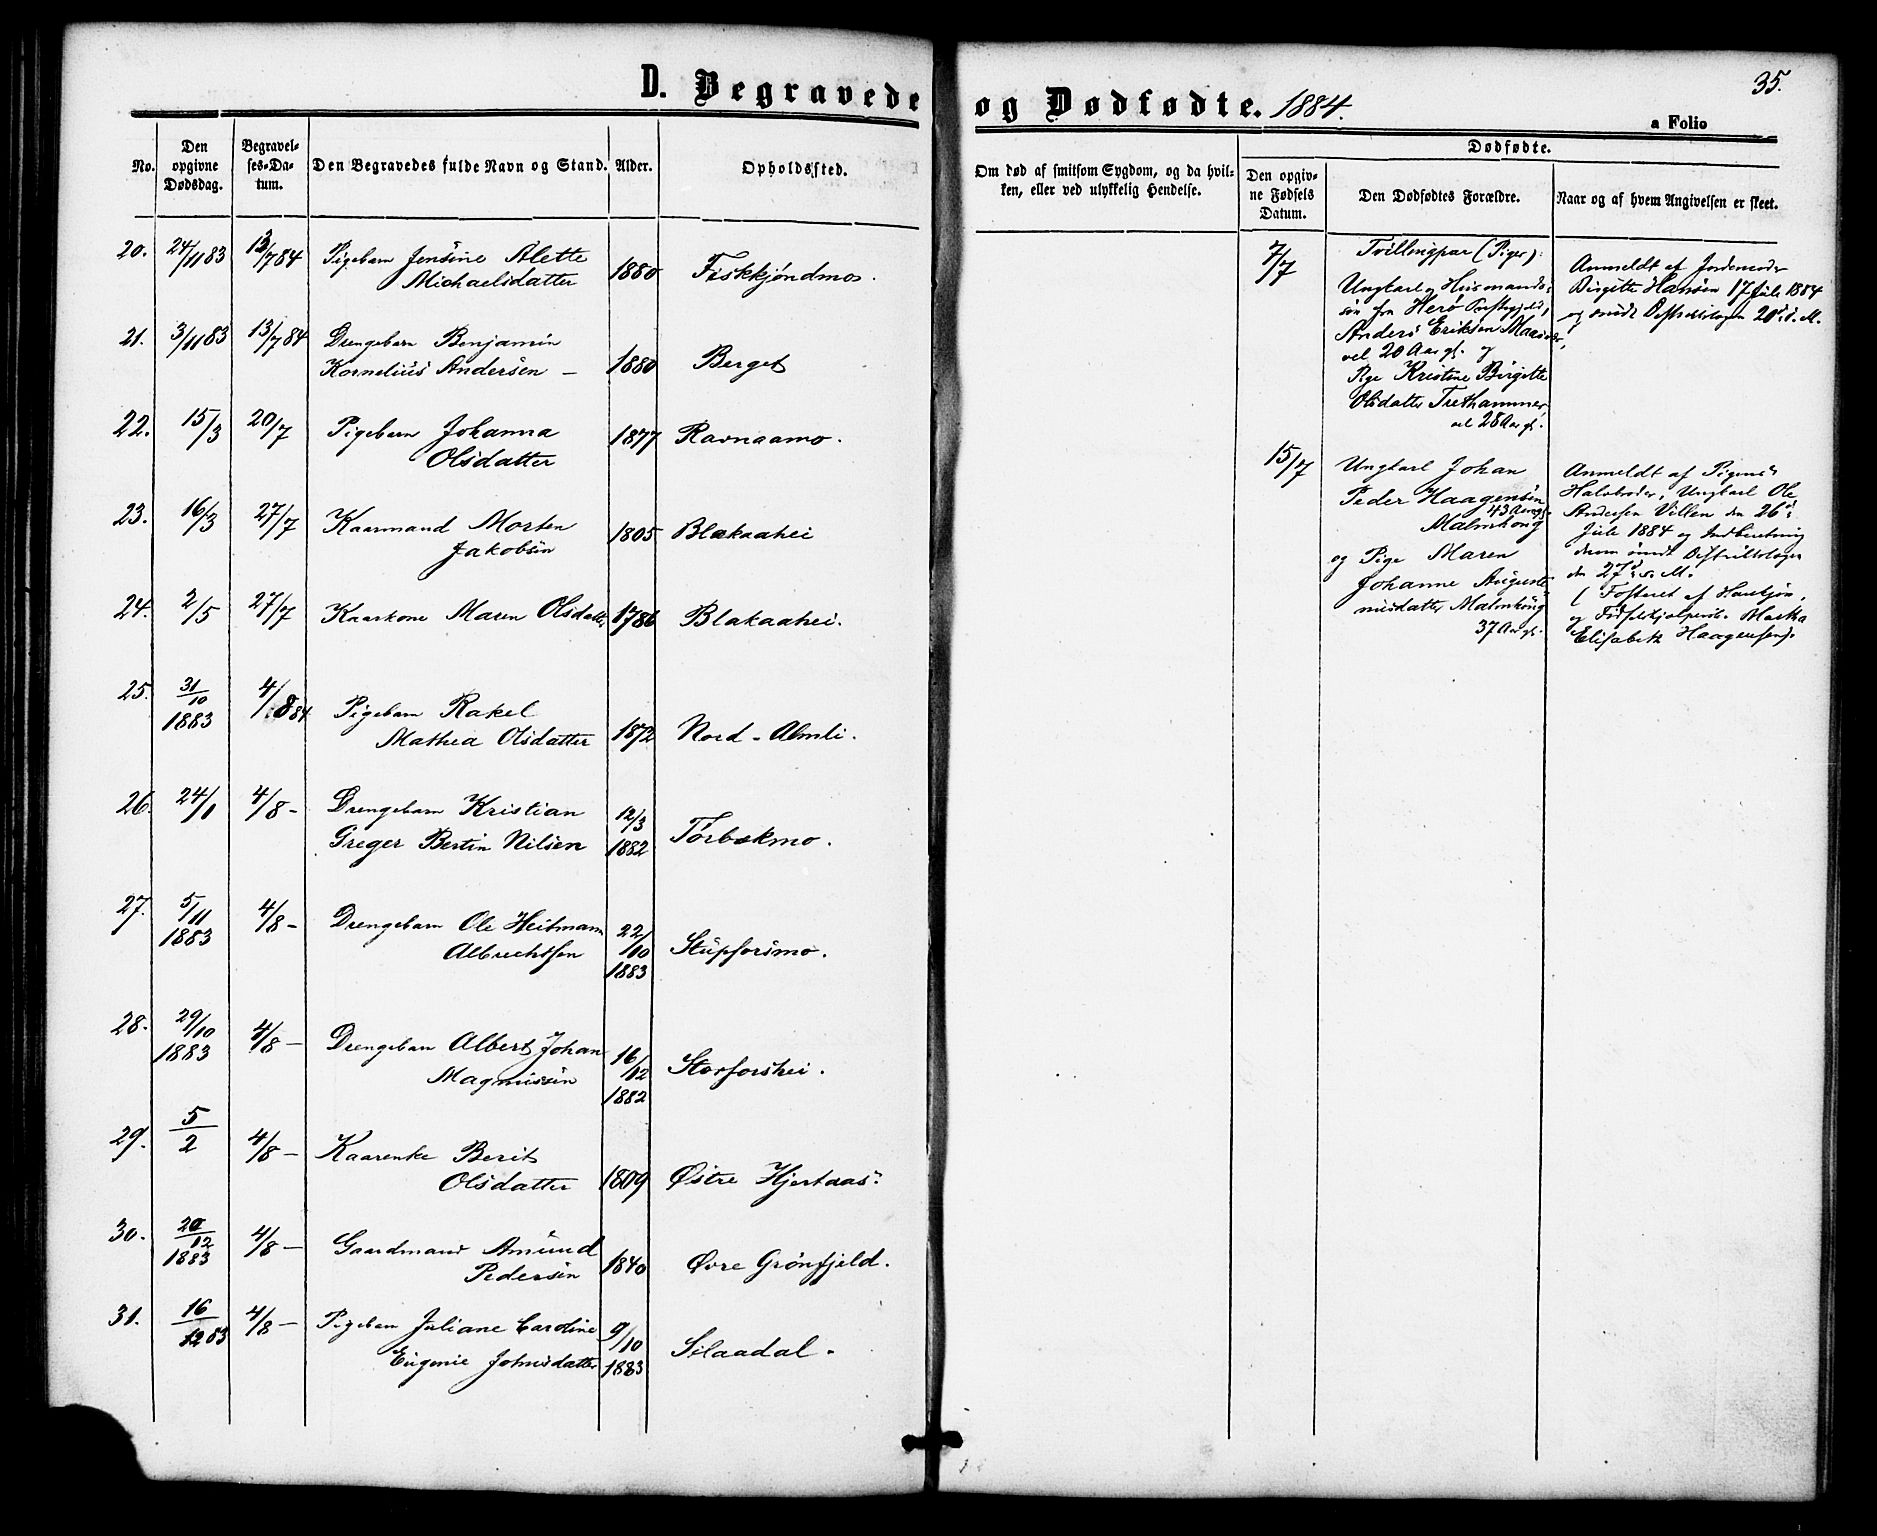 D. Begravede og Dødfødte. 1884.
35.
a Folio
No.
Den opgivne Dødsdag.
Begravelses-Datum.
Den Begravedes fulde Navn og Stand.
Alder.
Opholdssted.
Om død af smitsom Sygdom, og da hvilken, eller ved ulykkelig Hendelse.
Dødfødte.
Den opgivne Fødsels Datum.
Den Dødfødtes Forældre.
Naar og af hvem Angivelsen er skeet.
20. 24/11 83 13/7 84 Pigebarn Jensine Alette
Michaelsdatter 1880 Fiskkjøndmo.
21. 3/11 83 13/7 84 Drengebarn Benjamin
Kornelius Andersen – 1880 Berget
22. 15/3 20/7 Pigebarn Johanna
Olsdatter 1877 Ravnaamo.
23. 16/3 27/7 Kaarmand Morten
Jakobsen 1805 Blakaahei
24. 2/5 27/7 Kaarkone Maren Olsdatter 1786 Blakaahei.
25. 31/10 1883 4/8 84 Pigebarn Rakel
Mathea Olsdatter 1872 Nord-Almli.
26. 24/1 4/8 – Drengebarn Kristian
Greger Bertin Nilsen 12/3 1882 Tørbækmo.
27. 5/11 1883 4/8 – Drengebarn Ole Heitmann
Albrechtsen 22/10 1883 Stupforsmo.
28. 29/10 1883 4/8 – Drengebarn Albert Johan
Magnussen 16/12 1882 Storforshei.
29. 5/2 4/8 – Kaarenke Berit
Olsdatter 1809 Østre Hjertaas.
30. 20/12 1883 4/8 – Gaardmand Amund
Pedersen 1840 Øvre Grønfjeld.
31. 16/12 83 4/8 – Pigebarn Juliane Caroline
Eugenie Johnsdatter 9/10 1883 Silaadal.
7/7 Tvillingpar (Piger):
Ungkarl og Husmands-
søn fra Herø Præstegjeld,
Anders Eriksen
vel 20 Aar gl. og
Pige Kristine Birgitte
Olsdatter Trethammer,
vel 28 Aar gl.
Anmeldt af Jordemoder
Birgitte Hansen 17 Juli 1884
og sendt Distriktslægen 20de s. M.
15/7 Ungkarl Johan
Peder Haagensen
43 Aar gl.
Malmhaug
og Pige Maren
Johanne Auguste
Malmhaug
37 Aar gl.
Anmeldt af Pigens
Halvbroder, Ungkarl Ole
Andersen Villen den 26de
Juli 1884 og Indberetning
derom sendt Distriktslægen
den 27de s. M.
(Fosteret af Hankjøn,
og Fødselshjælperske Martha
Elisabeth Haagensen).